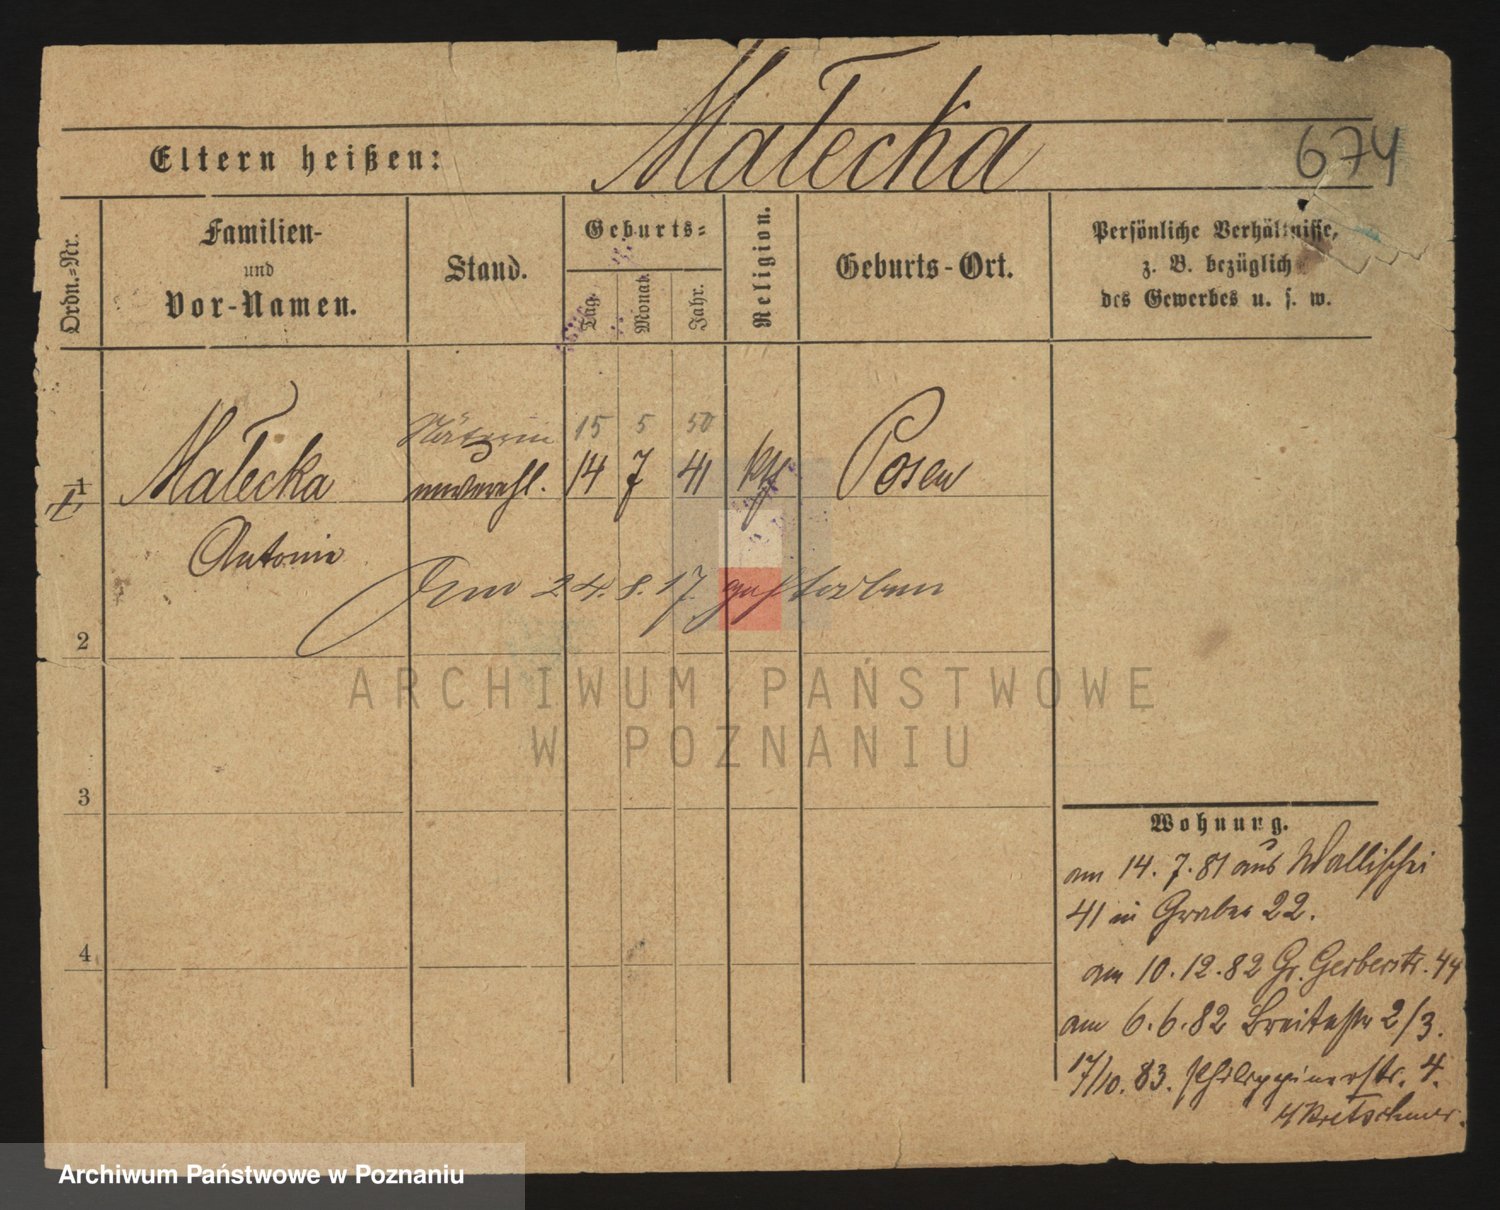 Małecka
674
Eltern heißen:
Ordn.=Nr.
Familien-
und
Vor-Namen.
Stand.
Geburts=
Tag.
Monat.
Jahr.
Religion.
Geburts-Ort.
Persönliche Verhältnisse,
z. B. bezüglich
des Gewerbes u. s. w.
Näterin 15 5 50
1 Małecka unverehl. 14 7 41 kth Posen
Antonie
Am 24. 8. 17 gestorben
2
3
4
ARCHIWUM PAŃSTWOWE
W POZNANIU
Wohnung.
am 14. 7. 81 aus Wallischei
41 in Graben 22.
am 10. 12. 82 Gr. Gerberstr. 44
am 6. 6. 82 Breitestr 2/3.
17/10. 83. Philippinerstr. 4.
Kretschmer.
Archiwum Państwowe w Poznaniu